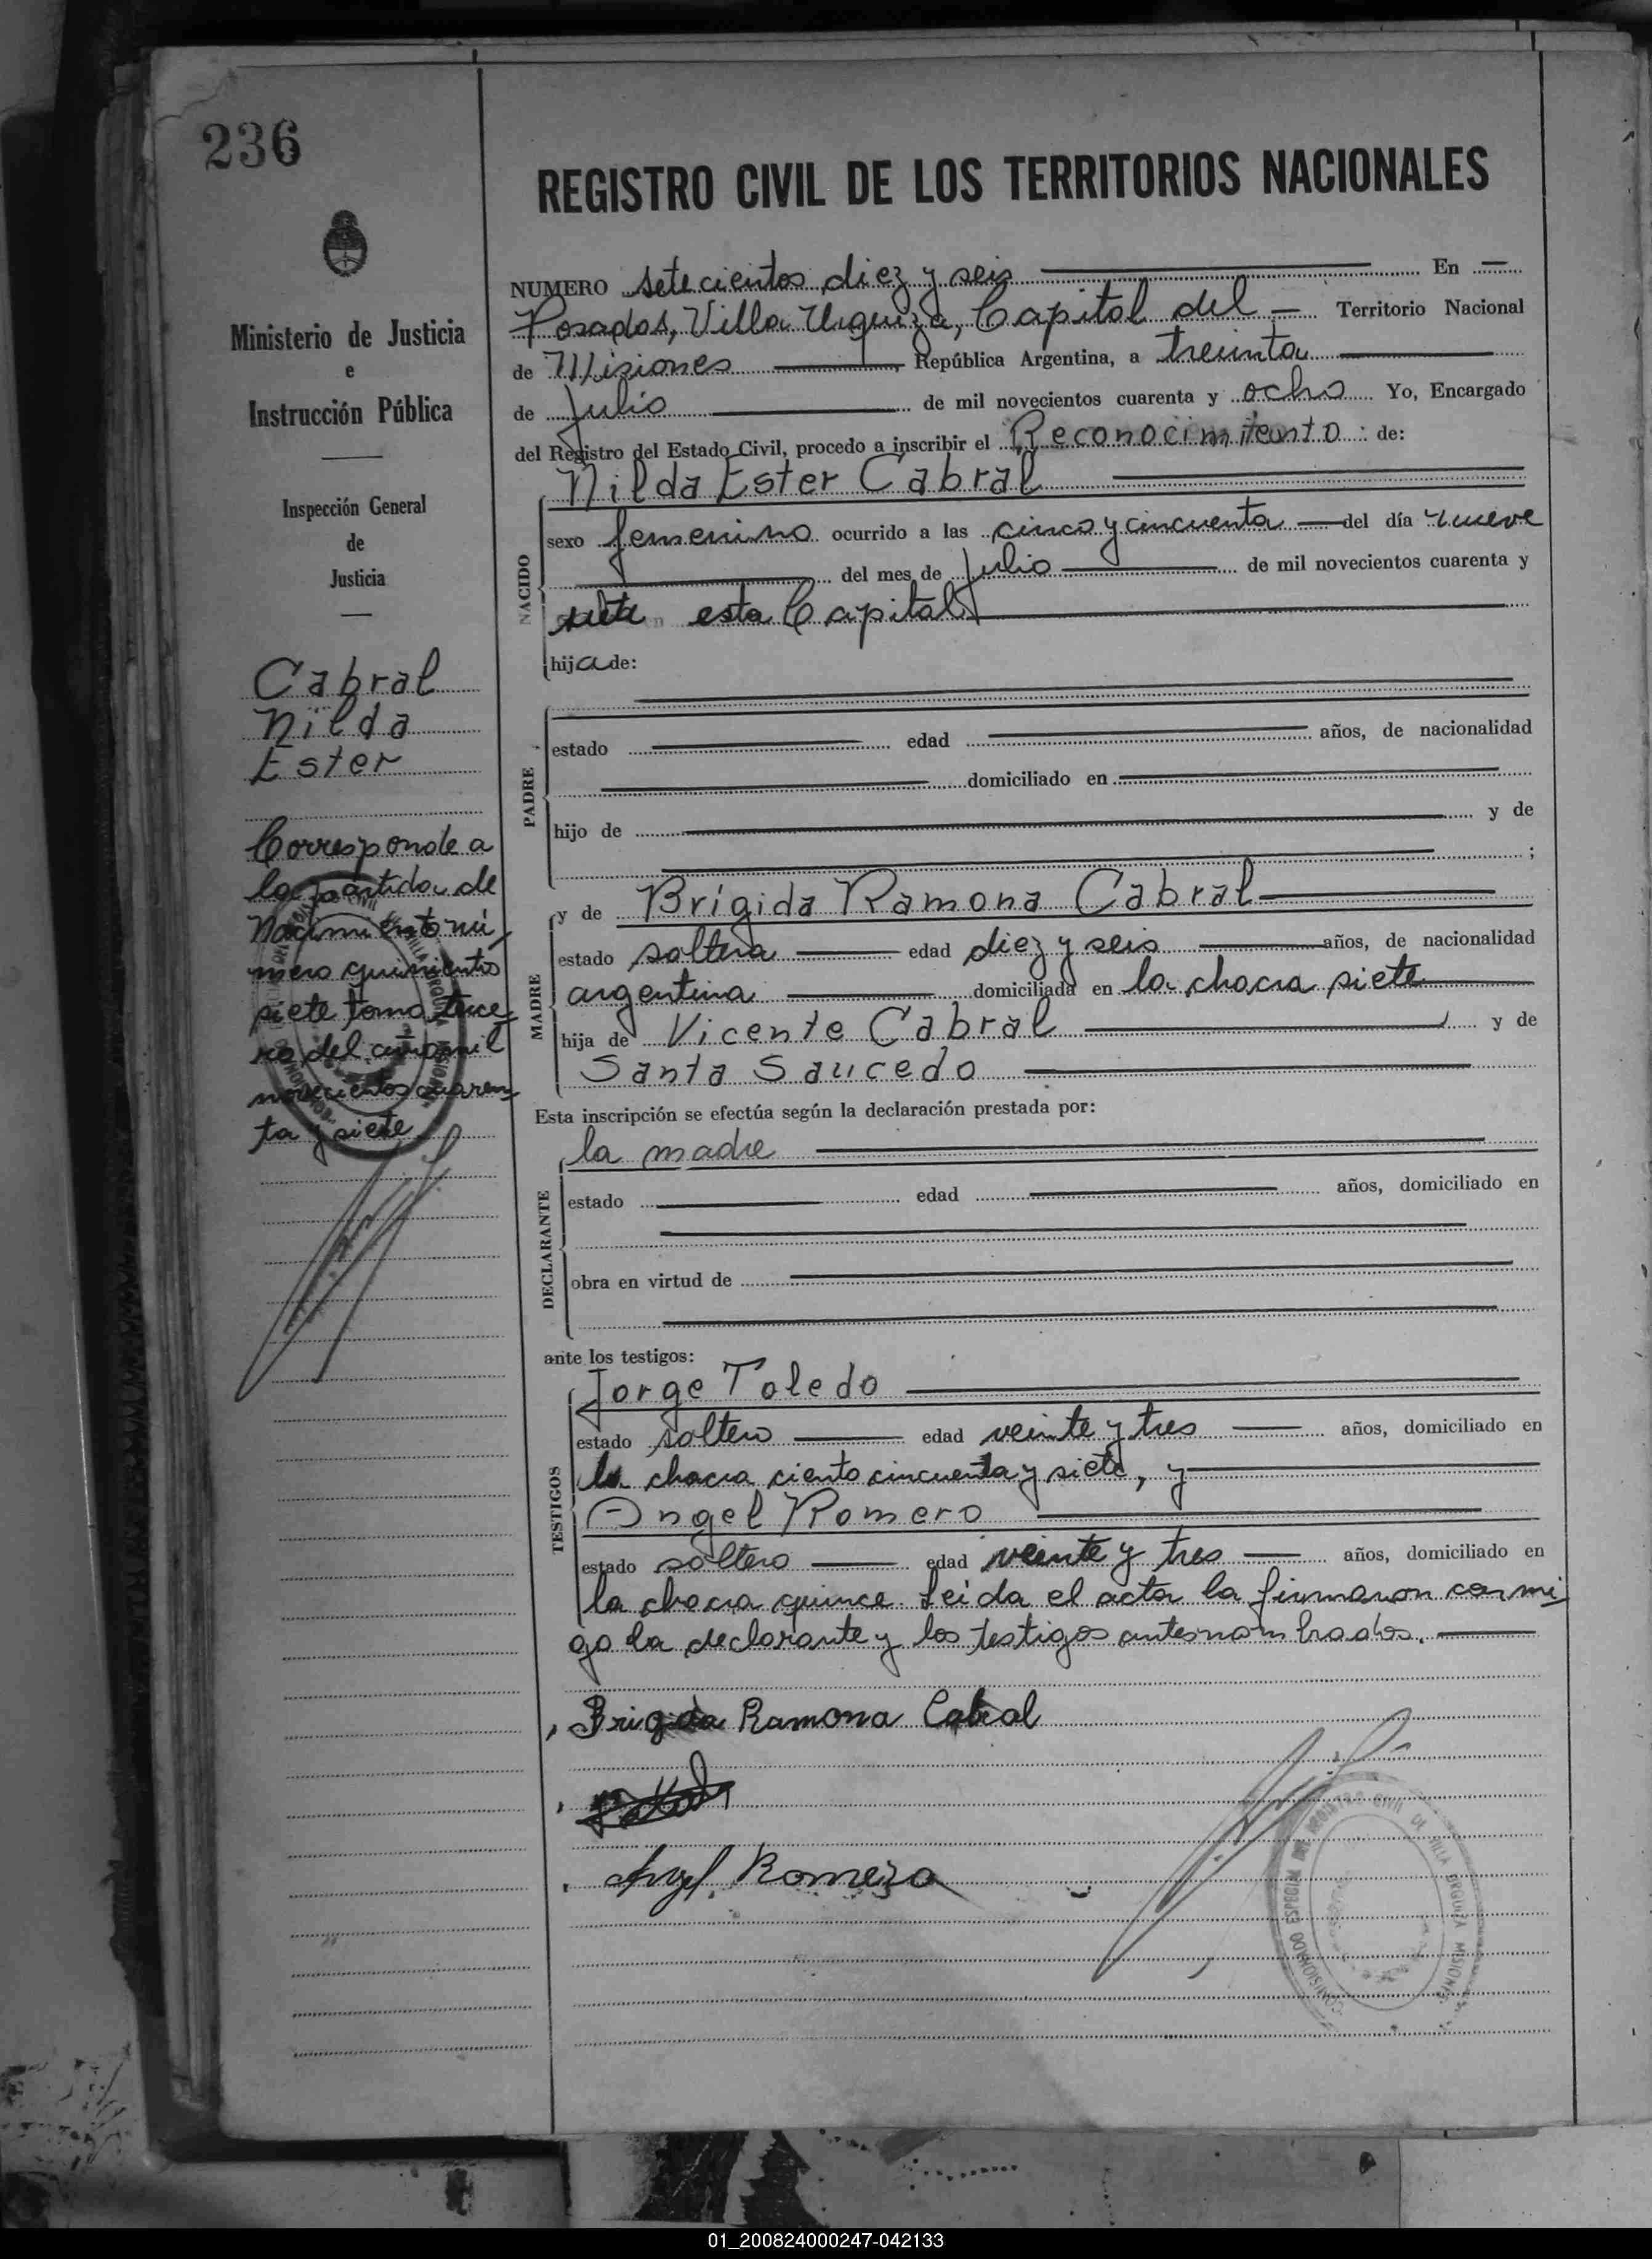 236
REGISTRO CIVIL DE LOS TERRITORIOS NACIONALES
Ministerio de Justicia
e
Instrucción Pública
Inspección General
de
Justicia
Cabral
Nilda
Ester
Corresponde a
la partida de
Nacimiento nú-
mero quinientos
siete tomo terce-
ro del año mil
novecientos cuaren-
ta y siete
NUMERO setecientos diez y seis En
Posadas, Villa Urquiza, Capital del Territorio Nacional
de Misiones, República Argentina, a treinta
de Julio de mil novecientos cuarenta y ocho Yo, Encargado
del Registro del Estado Civil, procedo a inscribir el Reconocimiento de:
NACIDO
Nilda Ester Cabral
sexo femenino ocurrido a las cinco y cincuenta del día nueve
del mes de Julio de mil novecientos cuarenta y
siete n esta Capital
hija de:
PADRE
estado edad años, de nacionalidad
domiciliado en
hijo de y de
;
MADRE
y de Brígida Ramona Cabral
estado soltera edad diez y seis años, de nacionalidad
argentina domiciliada en la chacra siete
hija de Vicente Cabral y de
Santa Saucedo
Esta inscripción se efectúa según la declaración prestada por:
DECLARANTE
la madre
estado edad años, domiciliado en
obra en virtud de
ante los testigos:
TESTIGOS
Jorge Toledo
estado soltero edad veinte y tres años, domiciliado en
la chacra ciento cincuenta y siete, y
Angel Romero
estado soltero edad veinte y tres años, domiciliado en
la chacra quince. Leida el acta la firmaron conmi-
go la declarante y los testigos antesnombrados.
Brigida Ramona Cabral
Angel Romero
COMISIONADO ESPECIAL DE REGISTRO CIVIL DE VILLA URQUIZA MISIONES
01_200824000247-042133